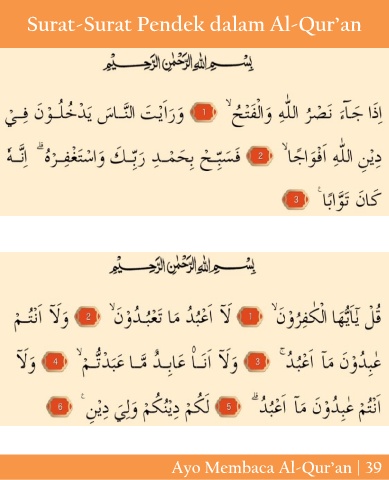 Surat-Surat Pendek dalam Al-Qur'an
بِسْمِ اللّٰهِ الرَّحْمٰنِ الرَّحِيْمِ
اِذَا جَاۤءَ نَصْرُ اللّٰهِ وَالْفَتْحُۙ 1 وَرَاَيْتَ النَّاسَ يَدْخُلُوْنَ فِيْ
دِيْنِ اللّٰهِ اَفْوَاجًاۙ 2 فَسَبِّحْ بِحَمْدِ رَبِّكَ وَاسْتَغْفِرْهُۗ اِنَّهٗ
كَانَ تَوَّابًا ࣖ 3
بِسْمِ اللّٰهِ الرَّحْمٰنِ الرَّحِيْمِ
قُلْ يٰٓاَيُّهَا الْكٰفِرُوْنَۙ 1 لَآ اَعْبُدُ مَا تَعْبُدُوْنَۙ 2 وَلَآ اَنْتُمْ
عٰبِدُوْنَ مَآ اَعْبُدُۚ 3 وَلَآ اَنَا۠ عَابِدٌ مَّا عَبَدْتُّمْۙ 4 وَلَآ
اَنْتُمْ عٰبِدُوْنَ مَآ اَعْبُدُۗ 5 لَكُمْ دِيْنُكُمْ وَلِيَ دِيْنِ ࣖ 6
Ayo Membaca Al-Qur'an | 39